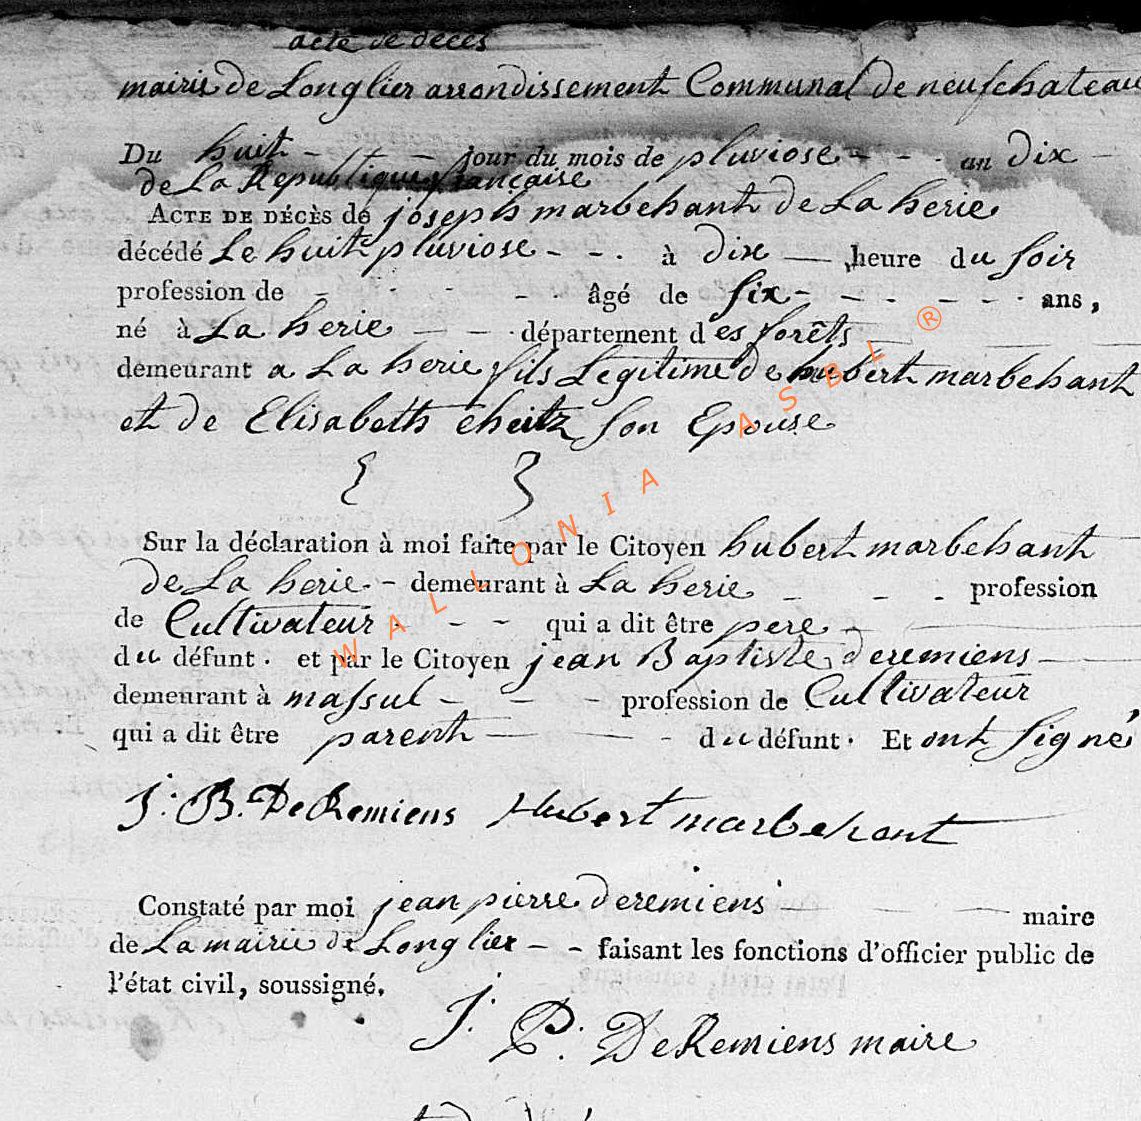 acte de décès
mairie de Longlier arrondissement Communal de neufchateau
Du huit - - jour du mois de pluviose - - - an Dix -
de La Republique française
ACTE DE DÉCÈS de joseph marbehant de La herie
décédé Le huit pluviose - - . à Dix — heure du soir
profession de - - - - - âgé de six - - - - - - ans,
né à La herie - - - département des forêts
demeurant a La herie fils Legitime de hubert marbehant
et de Elisabeth cheitz son Epouse
Sur la déclaration à moi faite par le Citoyen hubert marbehant
de La herie - - demeurant à La herie - - - profession
de Cultivateur - - - qui a dit être pere -
du défunt. et par le Citoyen jean Baptiste deremiens —
demeurant à massul - - - profession de Cultivateur
qui a dit être parent — — - du défunt. Et ont signé
J. B. DeRemiens Hubert marbehant
Constaté par moi jean pierre Deremiens — maire
de La mairie de Longlier - - faisant les fonctions d'officier public de
l'état civil, soussigné.
J. P. DeRemiens maire
WALLONIA ASBL ®